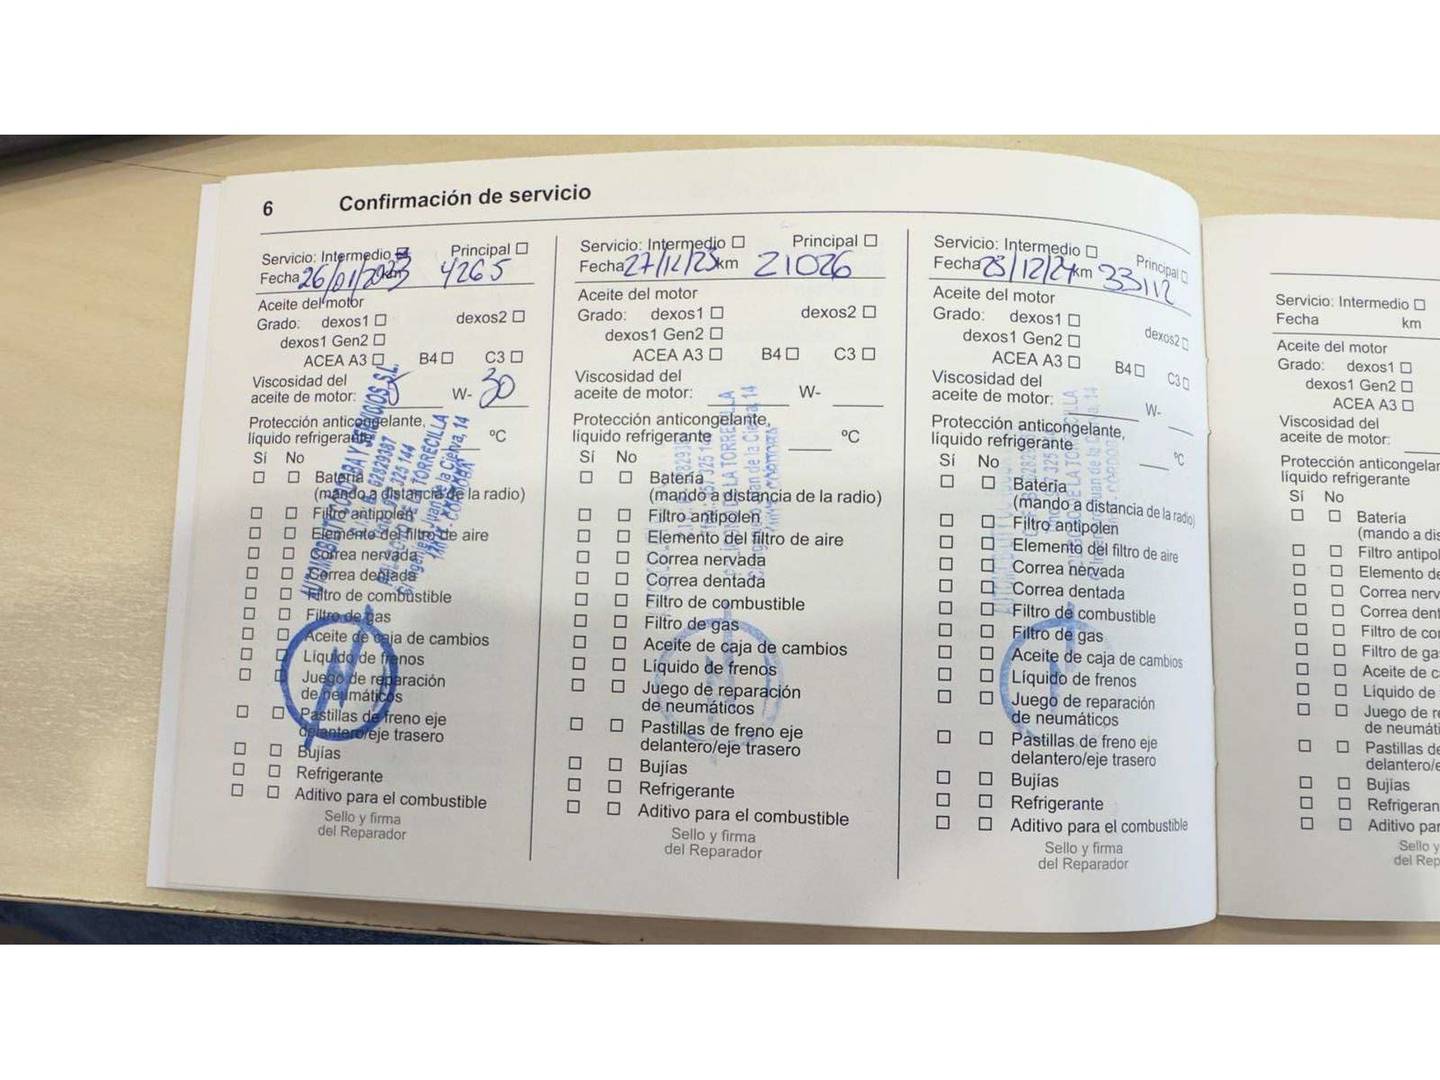 6 Confirmación de servicio
Servicio: Intermedio Principal
Fecha 26/01/2023 km 4265
Aceite del motor
Grado: dexos1 dexos2
dexos1 Gen2
ACEA A3 B4 C3
Viscosidad del
aceite de motor: 5 W- 30
Protección anticongelante,
líquido refrigerante ºC
Sí No
Batería
(mando a distancia de la radio)
Filtro antipolen
Elemento del filtro de aire
Correa nervada
Correa dentada
Filtro de combustible
Filtro de gas
Aceite de caja de cambios
Líquido de frenos
Juego de reparación
de neumáticos
Pastillas de freno eje
delantero/eje trasero
Bujías
Refrigerante
Aditivo para el combustible
Sello y firma
del Reparador
Y SERVICIOS S.L.
82829387
325 144
TORRECILLA
Juan de la Cierva, 14
Servicio: Intermedio Principal
Fecha 27/12/23 km 21026
Aceite del motor
Grado: dexos1 dexos2
dexos1 Gen2
ACEA A3 B4 C3
Viscosidad del
aceite de motor: W-
Protección anticongelante,
líquido refrigerante ºC
Sí No
Batería
(mando a distancia de la radio)
Filtro antipolen
Elemento del filtro de aire
Correa nervada
Correa dentada
Filtro de combustible
Filtro de gas
Aceite de caja de cambios
Líquido de frenos
Juego de reparación
de neumáticos
Pastillas de freno eje
delantero/eje trasero
Bujías
Refrigerante
Aditivo para el combustible
Sello y firma
del Reparador
325 144
LA TORRECILLA
Juan de la Cierva, 14
Servicio: Intermedio Principal
Fecha 23/12/24 km 33112
Aceite del motor
Grado: dexos1 dexos2
dexos1 Gen2
ACEA A3 B4 C3
Viscosidad del
aceite de motor: W-
Protección anticongelante,
líquido refrigerante ºC
Sí No
Batería
(mando a distancia de la radio)
Filtro antipolen
Elemento del filtro de aire
Correa nervada
Correa dentada
Filtro de combustible
Filtro de gas
Aceite de caja de cambios
Líquido de frenos
Juego de reparación
de neumáticos
Pastillas de freno eje
delantero/eje trasero
Bujías
Refrigerante
Aditivo para el combustible
Sello y firma
del Reparador
Servicio: Intermedio
Fecha km
Aceite del motor
Grado: dexos1
dexos1 Gen2
ACEA A3
Viscosidad del
aceite de motor:
Protección anticongelan
líquido refrigerante
Sí No
Batería
(mando a dis
Filtro antipol
Elemento de
Correa nerv
Correa dent
Filtro de co
Filtro de ga
Aceite de c
Líquido de
Juego de re
de neumáti
Pastillas de
delantero/e
Bujías
Refrigeran
Aditivo par
Sello y
del Rep